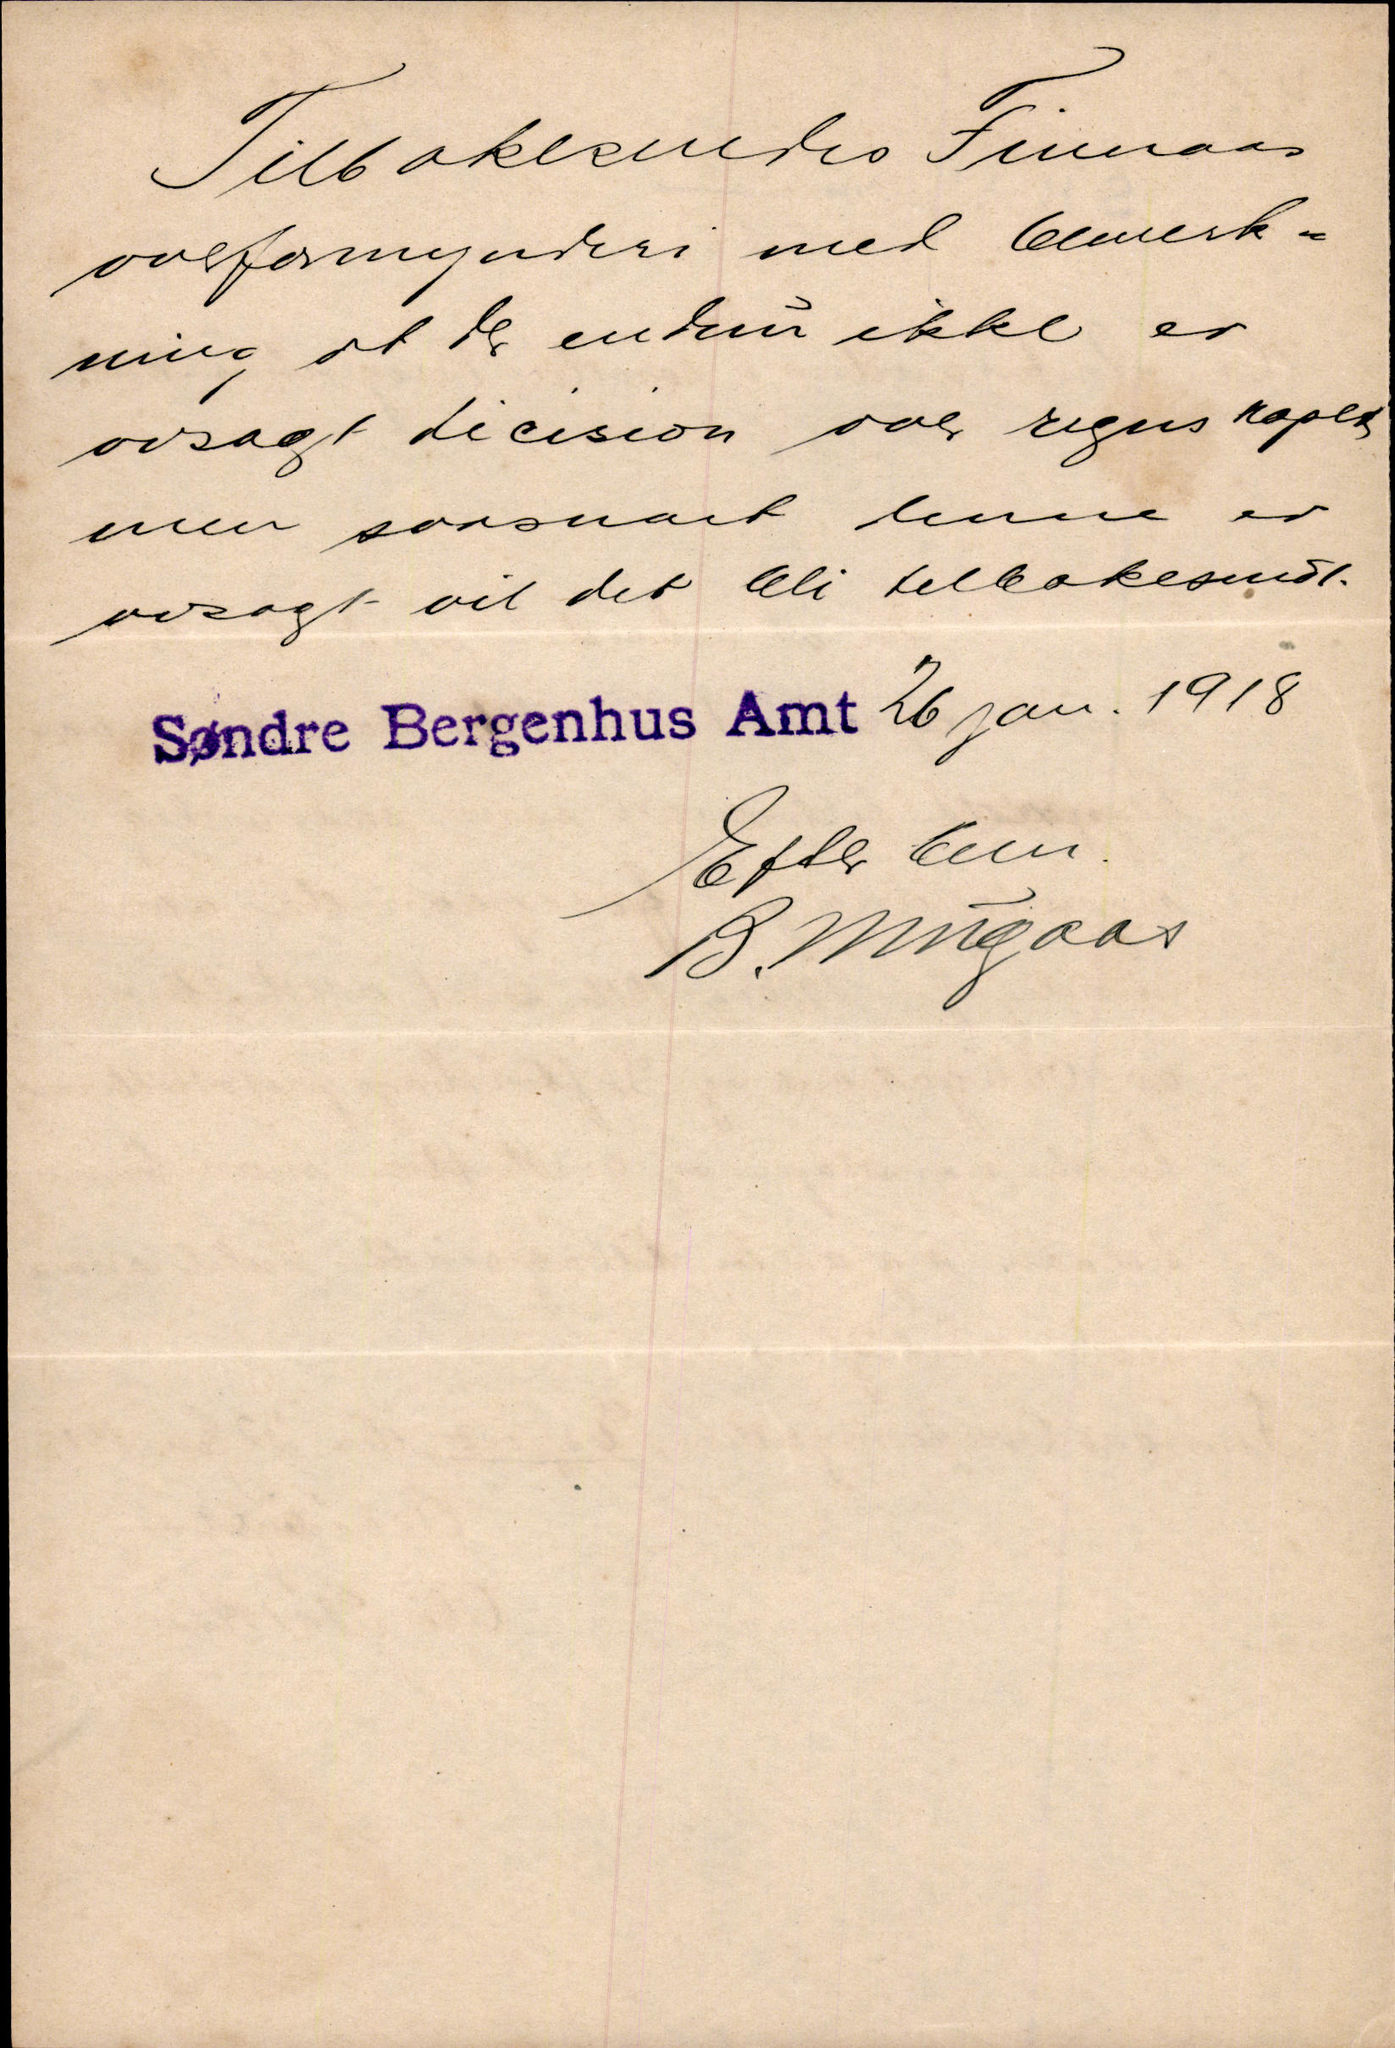 Tilbakesendes Finnaas
overformynderi med bemerk-
ning at der endnu ikke er
avsagt decision over regnskapet,
men saasnart denne er
avsagt vil det bli tilbakesendt.
Søndre Bergenhus Amt 26 jan. 1918
Efter bem.
B. Mugaas